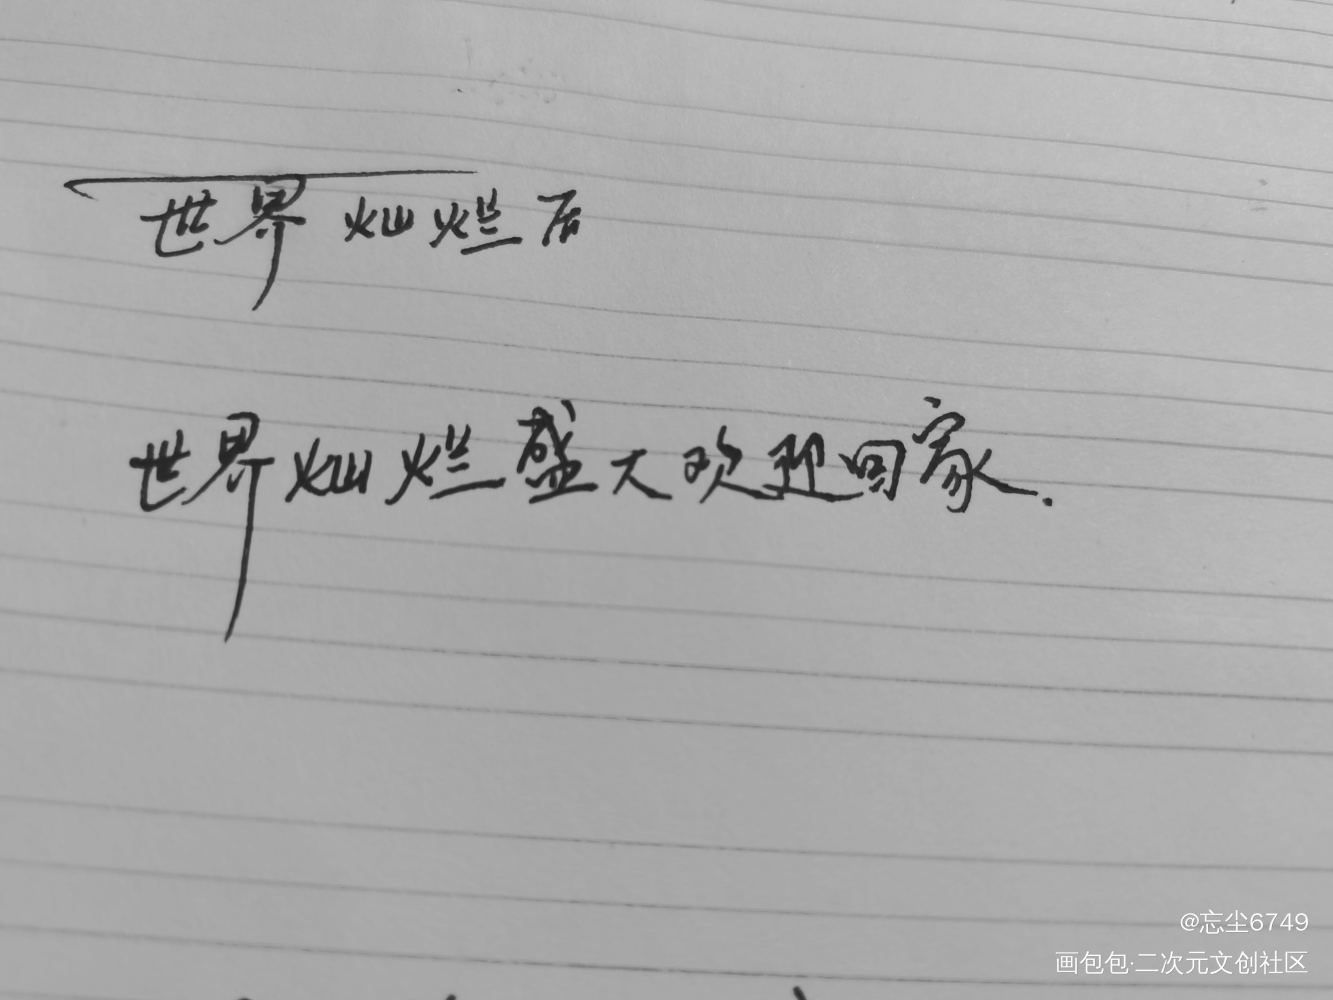 世界灿烂后
世界灿烂盛大欢迎回家.
@忘尘6749
画包包·二次元文创社区